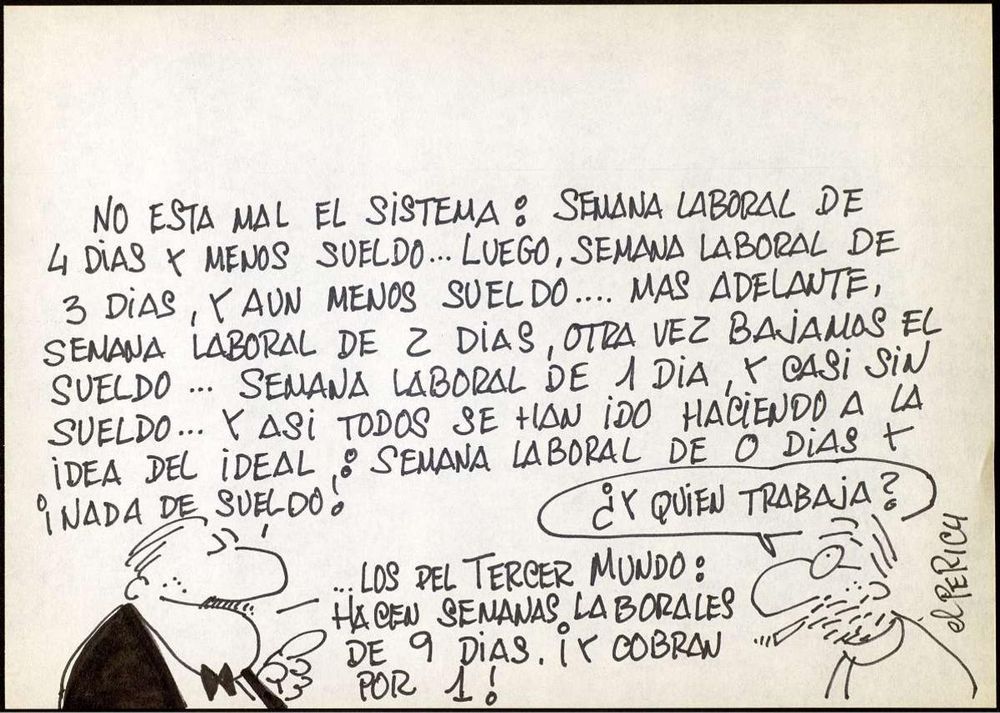 NO ESTA MAL EL SISTEMA: SEMANA LABORAL DE
4 DIAS Y MENOS SUELDO... LUEGO, SEMANA LABORAL DE
3 DIAS, Y AUN MENOS SUELDO.... MAS ADELANTE,
SEMANA LABORAL DE 2 DIAS, OTRA VEZ BAJAMOS EL
SUELDO... SEMANA LABORAL DE 1 DIA, Y CASI SIN
SUELDO... Y ASI TODOS SE HAN IDO HACIENDO A LA
IDEA DEL IDEAL: SEMANA LABORAL DE 0 DIAS Y
¡NADA DE SUELDO!
¿Y QUIEN TRABAJA?
...LOS DEL TERCER MUNDO:
HACEN SEMANAS LABORALES
DE 9 DIAS. ¡Y COBRAN
POR 1!
el PERICH